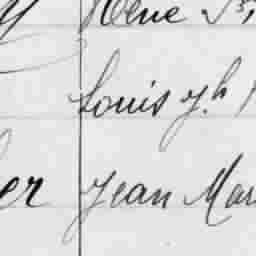 René
Louis Jh
er Jean Mar